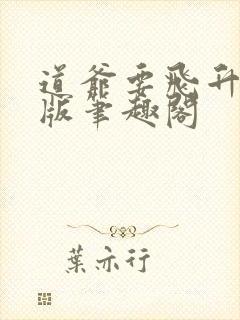 道爺要飛升
版筆趣閣
葉亦行